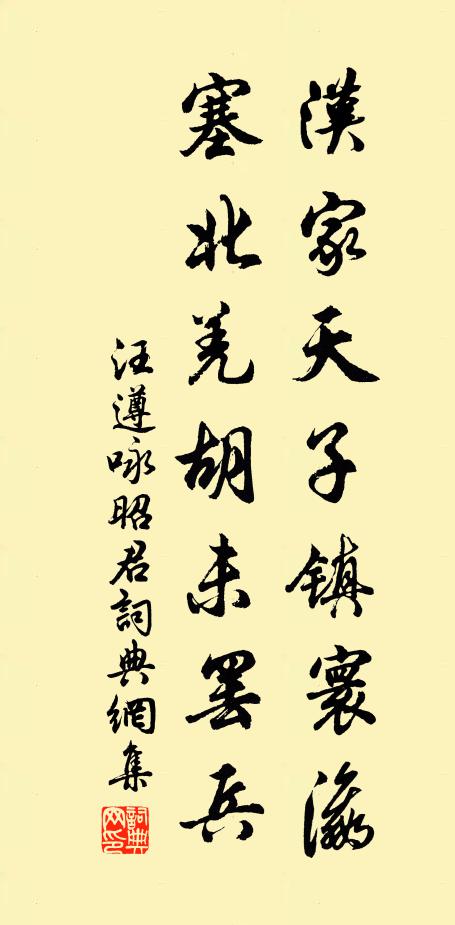 漢家天子鎮寰瀛
塞北羌胡未罷兵
汪遵咏昭君詞典網集
詞典網印